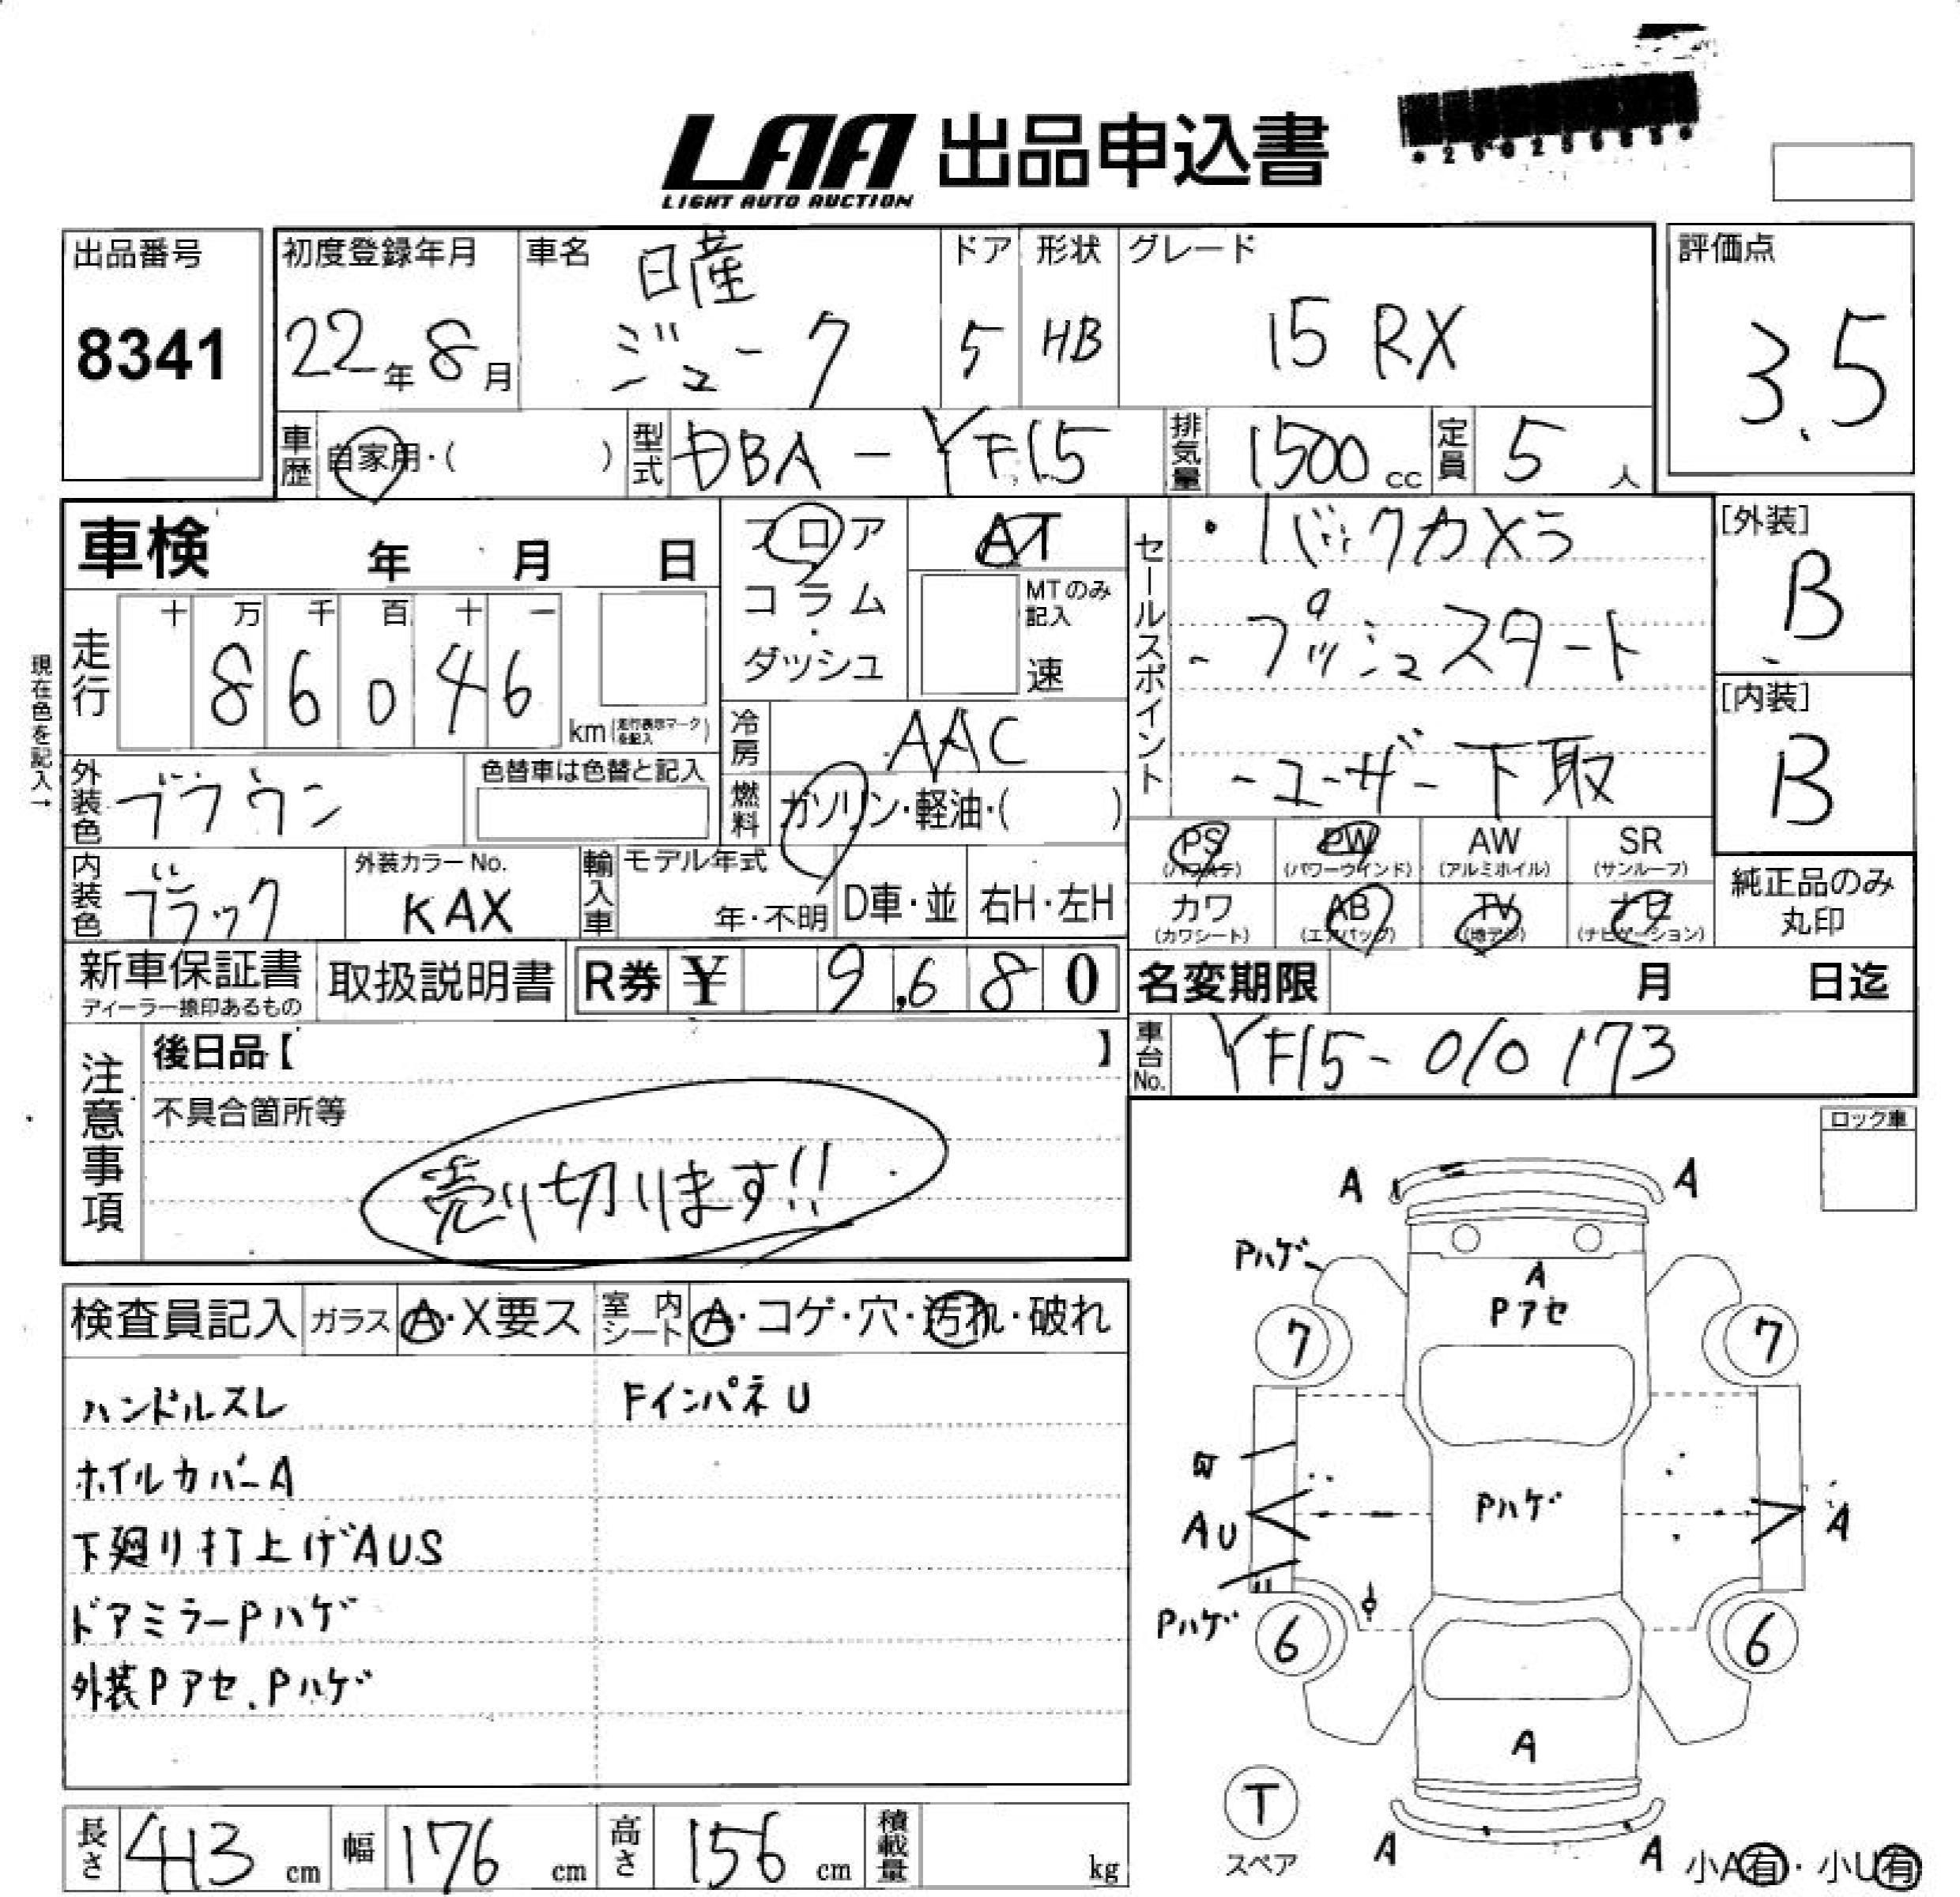 LAA 出品申込書
LIGHT AUTO AUCTION
出品番号
8341
初度登録年月
22年8月
車名
日産
ジューク
ドア
5
形状
HB
グレード
15RX
評価点
3.5
車歴 自家用・( )
型式 DBA-YF15
排気量 1500cc
定員 5人
車検 年 月 日
フロア
コラム・
ダッシュ
AT
MTのみ記入
速
セールスポイント
・バックカメラ
-プッシュスタート
-ユーザー下取
[外装]
B
[内装]
B
現在色を記入→
走行
十 万 千 百 十 一
8 6 0 4 6
km(走行表示マークを記入)
冷房 AAC
燃料 ガソリン・軽油・( )
外装色 ブラウン
色替車は色替と記入
内装色 ブラック
外装カラーNo.
KAX
輸入車
モデル年式
年・不明
D車・並
右H・左H
PS (パワステ)
PW (パワーウインド)
AW (アルミホイル)
SR (サンルーフ)
カワ (カワシート)
AB (エアバッグ)
TV (地デジ)
ナビ (ナビゲーション)
純正品のみ
丸印
新車保証書
ディーラー捺印あるもの
取扱説明書
R券 ¥ 9,680
名変期限 月 日迄
車台No. YF15-010173
注意事項
後日品【 】
不具合箇所等
売り切ります!!
ロック車
検査員記入
ガラス A・X要ス
室内シート A・コゲ・穴・汚れ・破れ
ハンドルスレ
FインパネU
ホイルカバーA
下廻り打上げAUS
ドアミラーPハゲ
外装Pアセ、Pハゲ
A A
Pハゲ
A
Pアセ
7 7
AU
Pハゲ
A
Pハゲ
6 6
A
T
スペア
A A
小A有・小U有
長さ 413cm
幅 176cm
高さ 156cm
積載量 kg